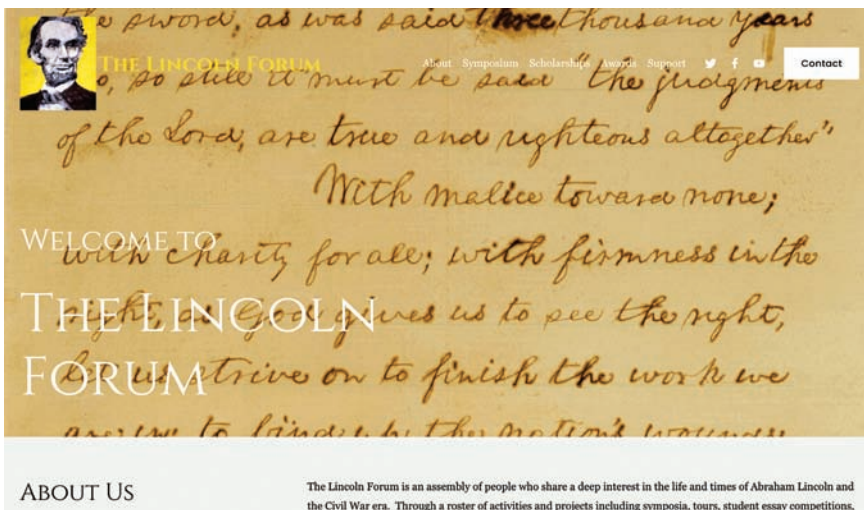 the sword, as was said three thousand years
THE LINCOLN FORUM
About Symposium Scholarships Awards Support
Contact
so, so still it must be said "the judgments
of the Lord, are true and righteous altogether"
With malice toward none;
WELCOME TO
with charity for all; with firmness in the
THE LINCOLN
right, as God gives us to see the right,
FORUM
let us strive on to finish the work we
are in; to bind up the nation's wounds;
ABOUT US
The Lincoln Forum is an assembly of people who share a deep interest in the life and times of Abraham Lincoln and
the Civil War era. Through a roster of activities and projects including symposia, tours, student essay competitions,